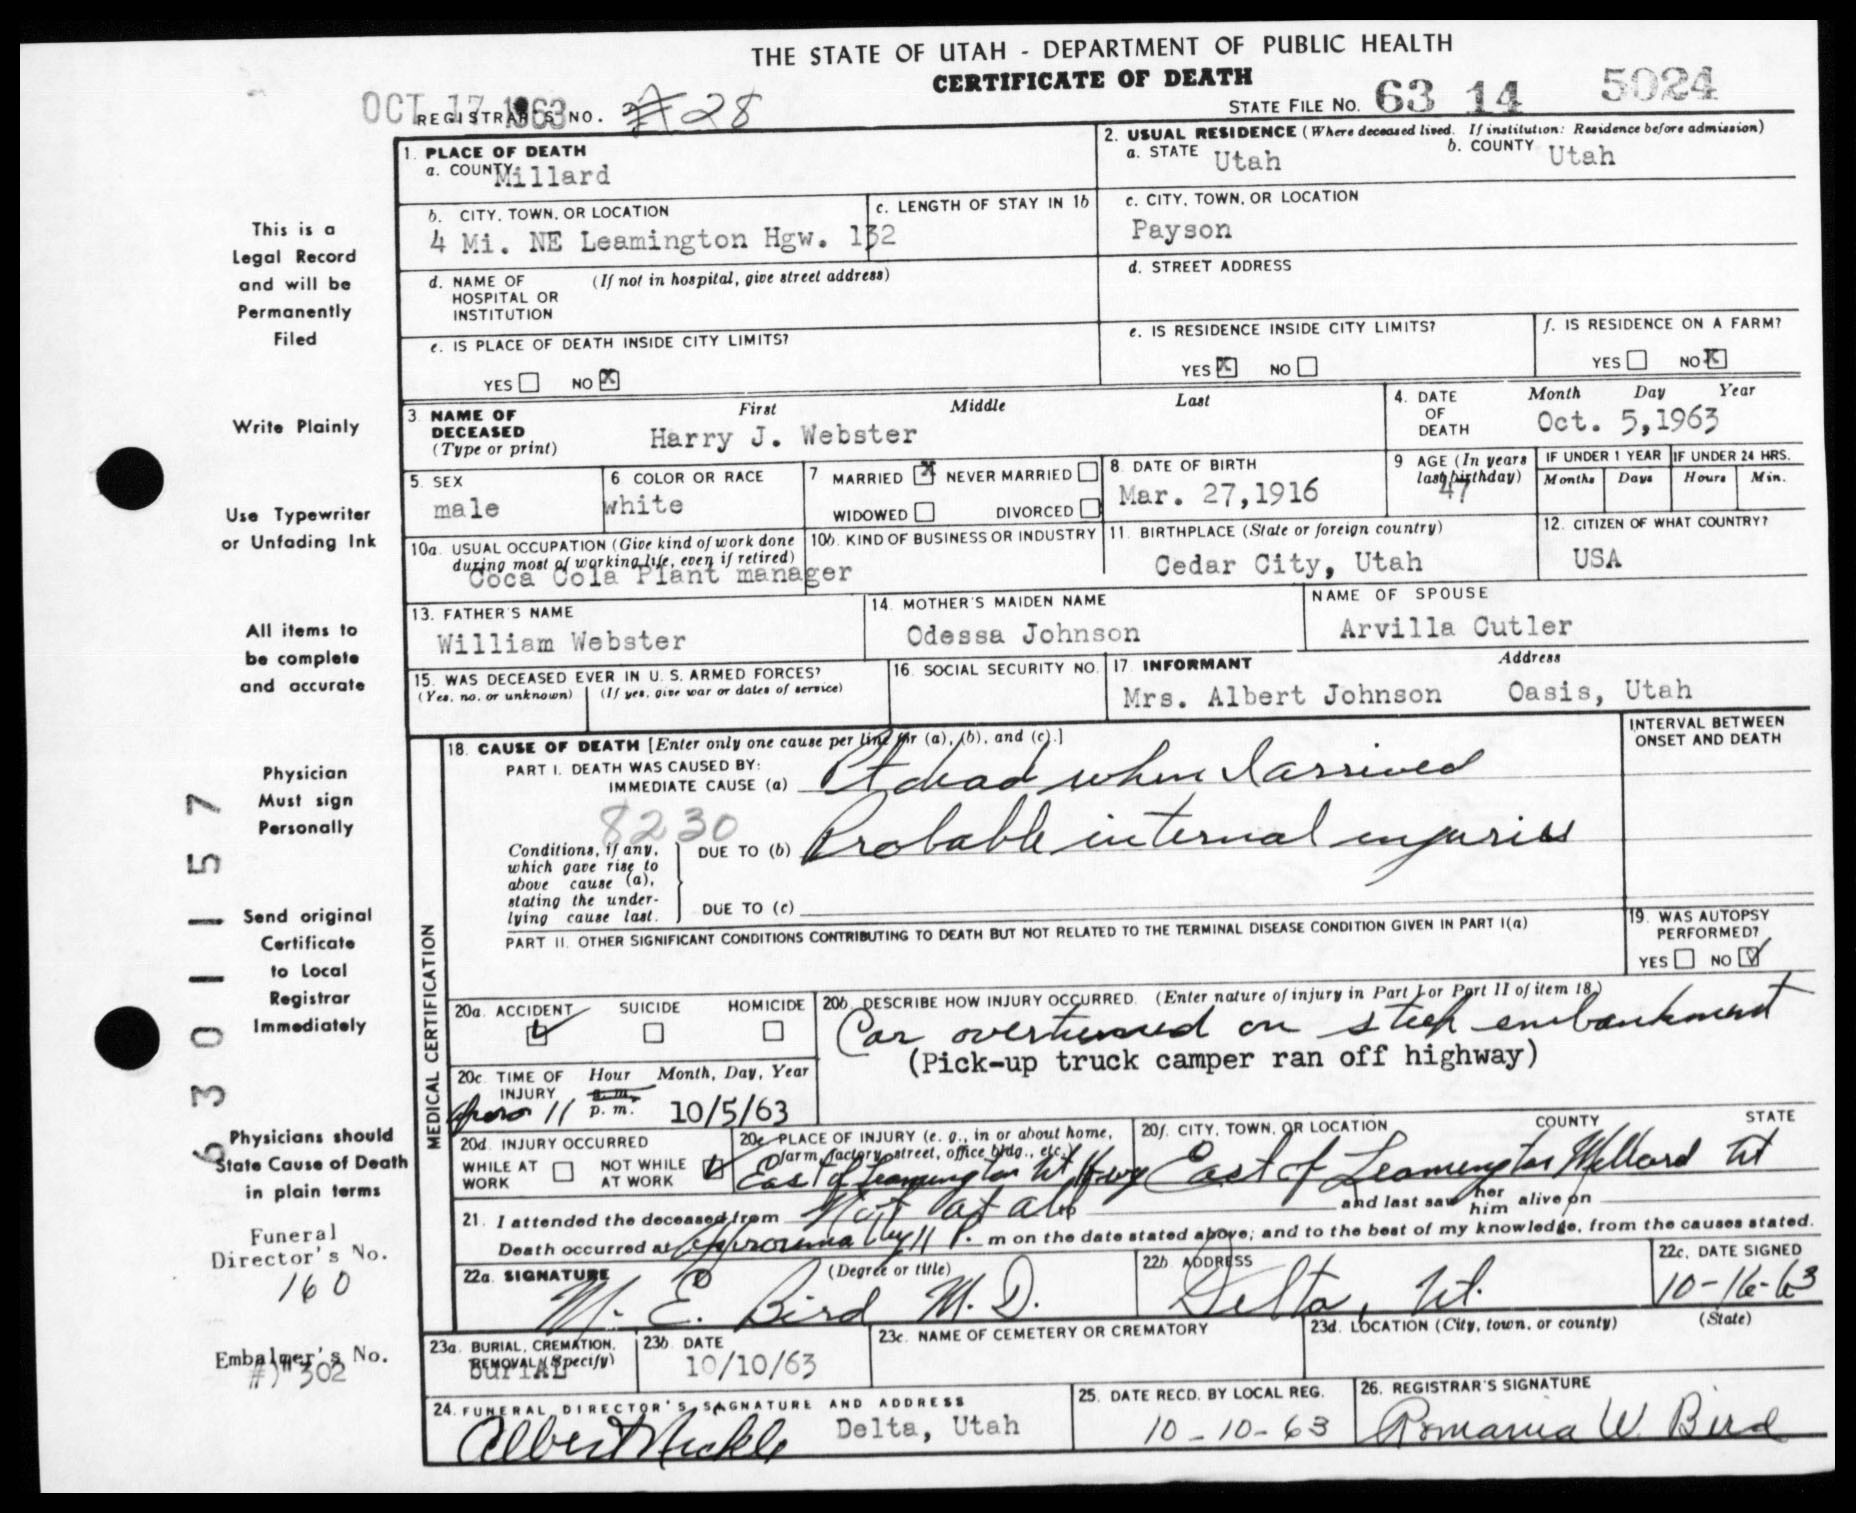 THE STATE OF UTAH - DEPARTMENT OF PUBLIC HEALTH
CERTIFICATE OF DEATH
OCT 17 1963
REGISTRAR'S NO. #28
STATE FILE NO. 63 14 5024
1. PLACE OF DEATH
a. COUNTY Millard
2. USUAL RESIDENCE (Where deceased lived. If institution: Residence before admission)
a. STATE Utah b. COUNTY Utah
b. CITY, TOWN, OR LOCATION
4 Mi. NE Leamington Hgw. 132
c. LENGTH OF STAY IN 1b
c. CITY, TOWN, OR LOCATION
Payson
d. NAME OF HOSPITAL OR INSTITUTION (If not in hospital, give street address)
d. STREET ADDRESS
e. IS PLACE OF DEATH INSIDE CITY LIMITS?
YES NO X
e. IS RESIDENCE INSIDE CITY LIMITS?
YES X NO
f. IS RESIDENCE ON A FARM?
YES NO X
3. NAME OF DECEASED (Type or print)
First Middle Last
Harry J. Webster
4. DATE OF DEATH
Month Day Year
Oct. 5,1963
5. SEX
male
6 COLOR OR RACE
white
7 MARRIED X NEVER MARRIED
WIDOWED DIVORCED
8. DATE OF BIRTH
Mar. 27,1916
9 AGE (In years last birthday)
47
IF UNDER 1 YEAR
Months Days
IF UNDER 24 HRS.
Hours Min.
10a. USUAL OCCUPATION (Give kind of work done during most of working life, even if retired)
Coca Cola Plant manager
10b. KIND OF BUSINESS OR INDUSTRY
11. BIRTHPLACE (State or foreign country)
Cedar City, Utah
12. CITIZEN OF WHAT COUNTRY?
USA
13. FATHER'S NAME
William Webster
14. MOTHER'S MAIDEN NAME
Odessa Johnson
NAME OF SPOUSE
Arvilla Cutler
15. WAS DECEASED EVER IN U. S. ARMED FORCES?
(Yes, no, or unknown) (If yes, give war or dates of service)
16. SOCIAL SECURITY NO.
17. INFORMANT Address
Mrs. Albert Johnson Oasis, Utah
MEDICAL CERTIFICATION
18. CAUSE OF DEATH [Enter only one cause per line for (a), (b), and (c).]
INTERVAL BETWEEN ONSET AND DEATH
PART I. DEATH WAS CAUSED BY:
IMMEDIATE CAUSE (a) Pt dead when I arrived
8230
Conditions, if any, which gave rise to above cause (a), stating the underlying cause last.
DUE TO (b) Probable internal injuries
DUE TO (c)
PART II. OTHER SIGNIFICANT CONDITIONS CONTRIBUTING TO DEATH BUT NOT RELATED TO THE TERMINAL DISEASE CONDITION GIVEN IN PART I(a)
19. WAS AUTOPSY PERFORMED?
YES NO
20a. ACCIDENT SUICIDE HOMICIDE
20b. DESCRIBE HOW INJURY OCCURRED. (Enter nature of injury in Part I or Part II of item 18.)
Car overturned on steep embankment
(Pick-up truck camper ran off highway)
20c. TIME OF INJURY Hour Month, Day, Year
a. m.
11 p. m. 10/5/63
20d. INJURY OCCURRED
WHILE AT WORK NOT WHILE AT WORK
20e. PLACE OF INJURY (e. g., in or about home, farm, factory, street, office bldg., etc.)
East of Leamington Ut Hwy
20f. CITY, TOWN, OR LOCATION COUNTY STATE
East of Leamington Millard Ut
21. I attended the deceased from Not at all and last saw her him alive on
Death occurred at approximately 11 P. m on the date stated above; and to the best of my knowledge, from the causes stated.
22a. SIGNATURE (Degree or title)
M. E. Bird M. D.
22b. ADDRESS
Delta, Ut.
22c. DATE SIGNED
10-16-63
23a. BURIAL, CREMATION, REMOVAL (Specify)
BuriAL
23b. DATE
10/10/63
23c. NAME OF CEMETERY OR CREMATORY
23d. LOCATION (City, town, or county) (State)
24. FUNERAL DIRECTOR'S SIGNATURE AND ADDRESS
Albert Nickle Delta, Utah
25. DATE RECD. BY LOCAL REG.
10-10-63
26. REGISTRAR'S SIGNATURE
Romania W. Bird
This is a
Legal Record
and will be
Permanently
Filed
Write Plainly
Use Typewriter
or Unfading Ink
All items to
be complete
and accurate
Physician
Must sign
Personally
Send original
Certificate
to Local
Registrar
Immediately
Physicians should
State Cause of Death
in plain terms
Funeral
Director's No.
160
Embalmer's No.
302